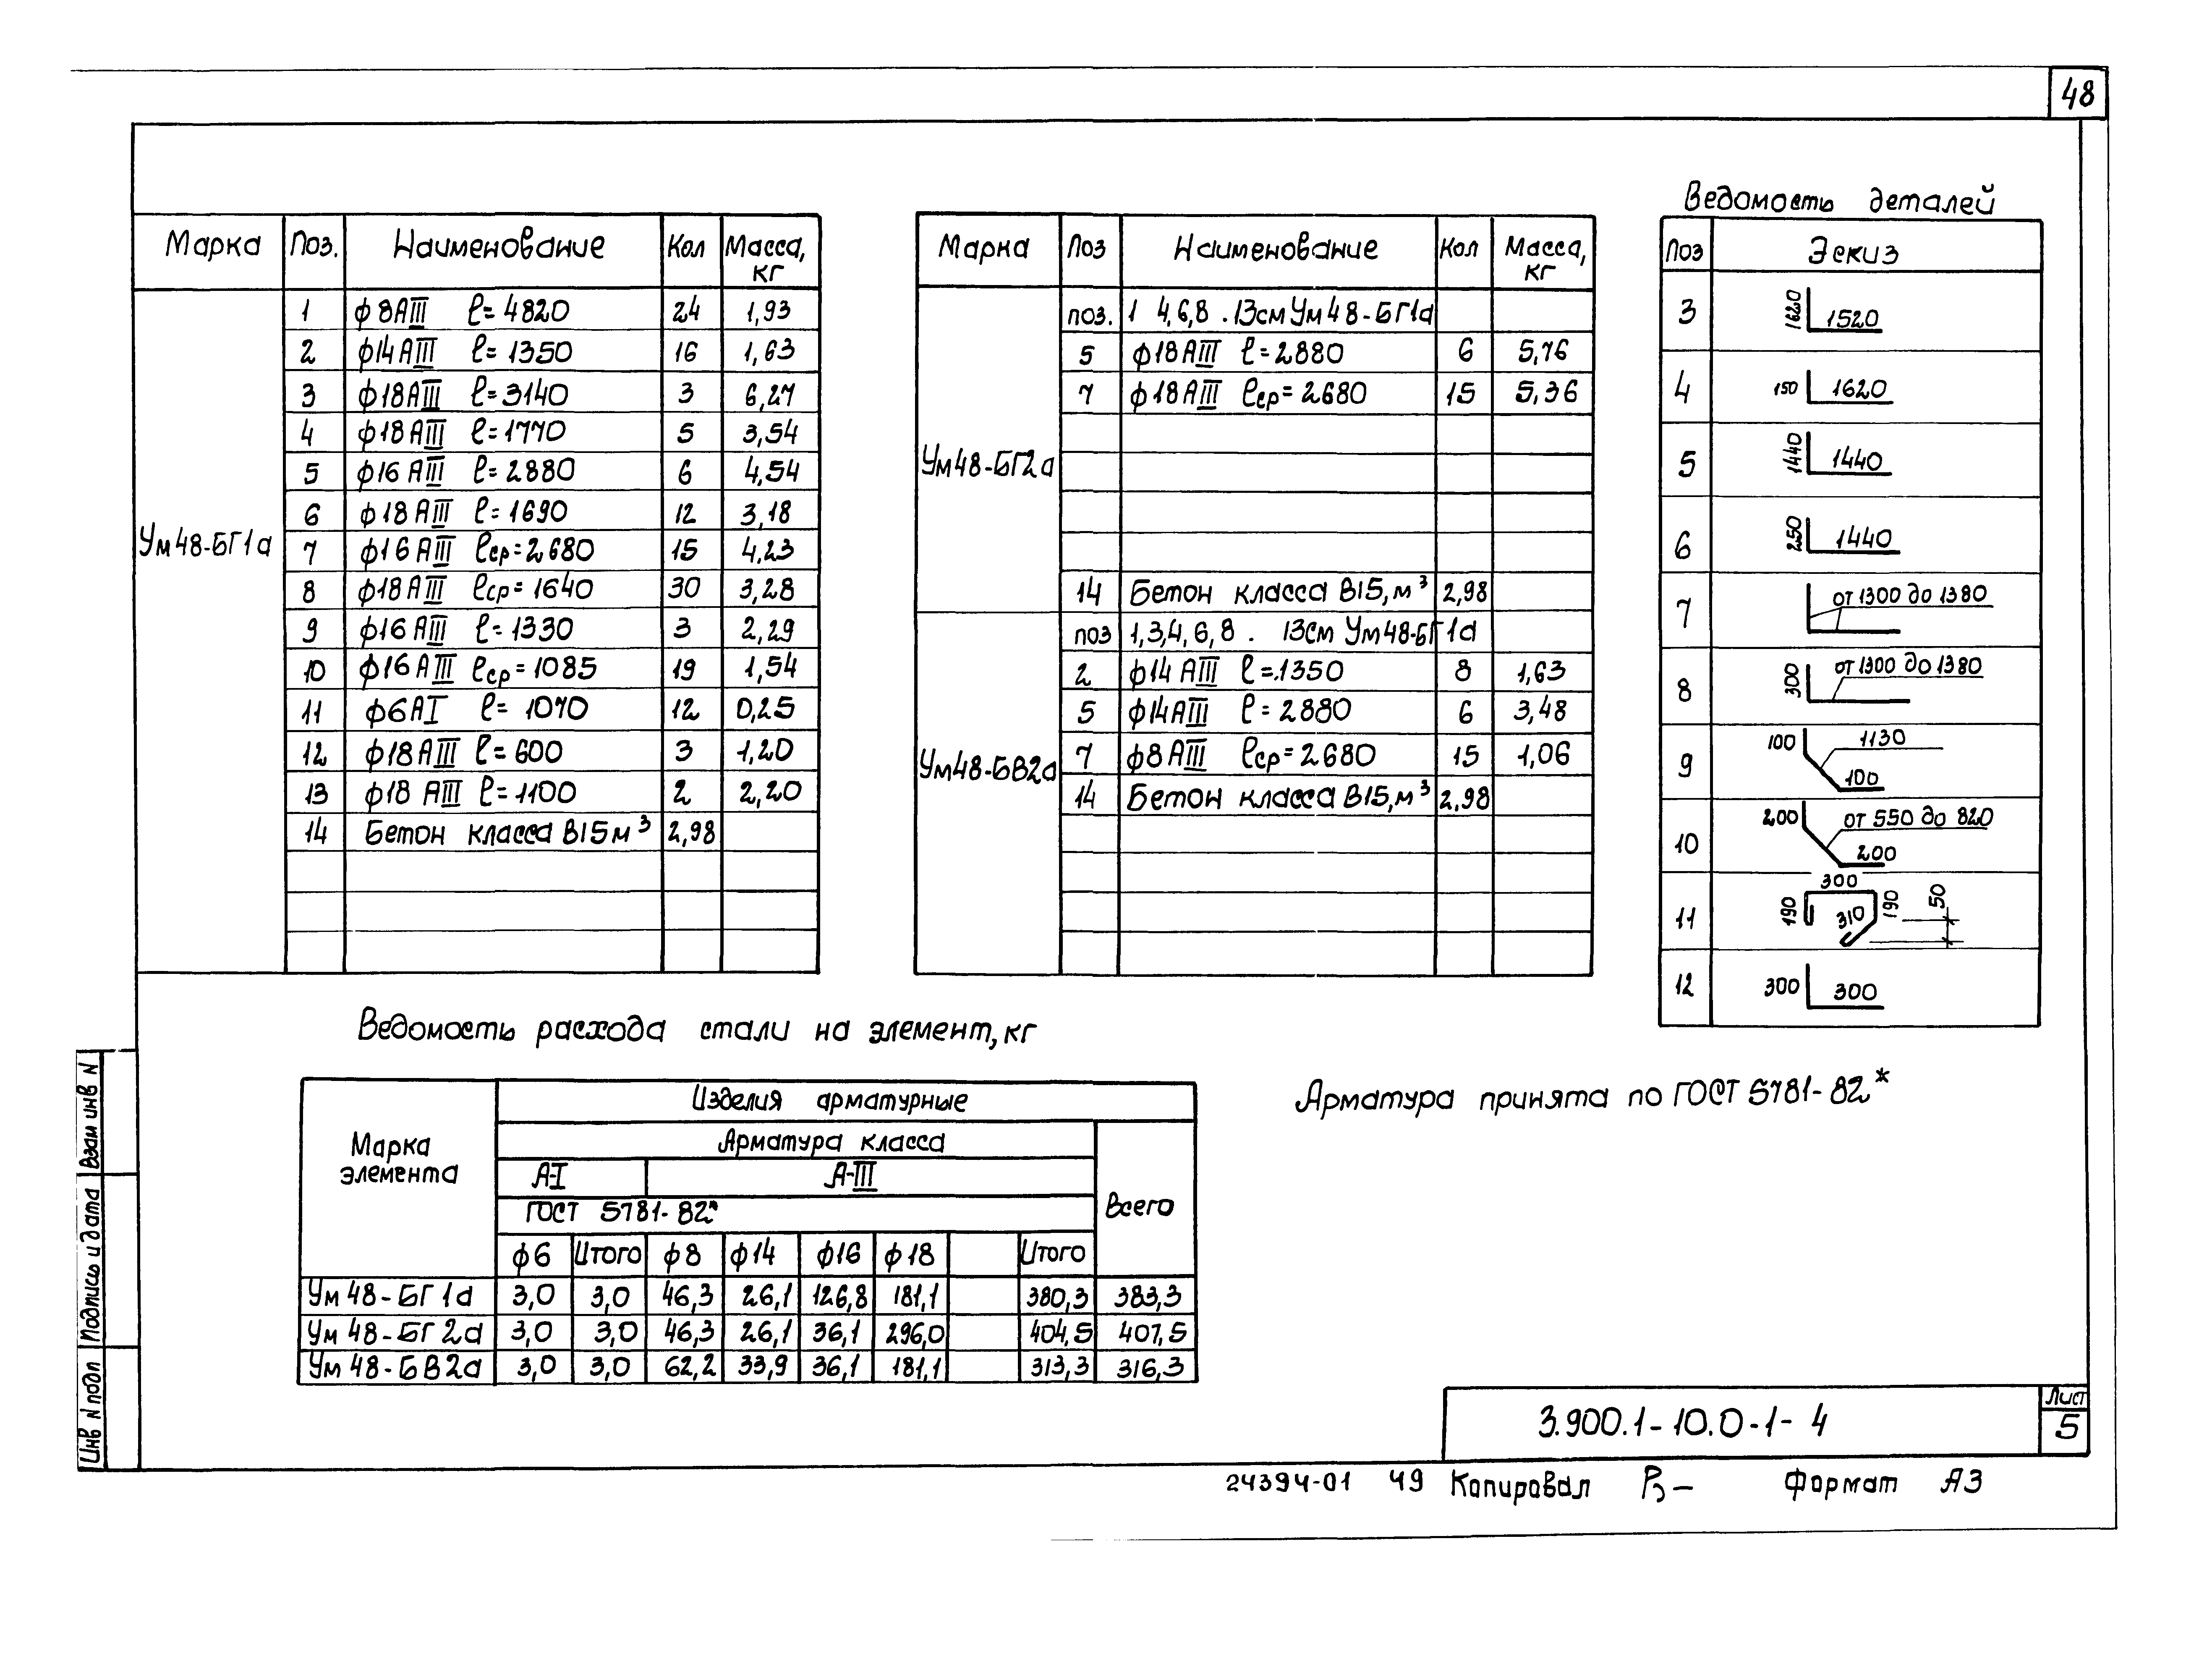 48
Марка Поз. Наименование Кол Масса, кг
Ум48-БГ1а
1 ф8АIII ℓ=4820 24 1,93
2 ф14АIII ℓ=1350 16 1,63
3 ф18АIII ℓ=3140 3 6,27
4 ф18АIII ℓ=1770 5 3,54
5 ф16АIII ℓ=2880 6 4,54
6 ф18АIII ℓ=1690 12 3,18
7 ф16АIII ℓср=2680 15 4,23
8 ф18АIII ℓср=1640 30 3,28
9 ф16АIII ℓ=1330 3 2,29
10 ф16АIII ℓср=1085 19 1,54
11 ф6АI ℓ=1070 12 0,25
12 ф18АIII ℓ=600 3 1,20
13 ф18АIII ℓ=1100 2 2,20
14 Бетон класса В15 м³ 2,98
Марка Поз Наименование Кол Масса, кг
Ум48-БГ2а
поз. 1 4,6,8 . 13см Ум48-БГ1а
5 ф18АIII ℓ=2880 6 5,76
7 ф18АIII ℓср=2680 15 5,36
14 Бетон класса В15, м³ 2,98
Ум48-БВ2а
поз 1,3,4,6,8 . 13см Ум48-БГ1а
2 ф14АIII ℓ=1350 8 1,63
5 ф14АIII ℓ=2880 6 3,48
7 ф8АIII ℓср=2680 15 1,06
14 Бетон класса В15, м³ 2,98
Ведомость деталей
Поз Эскиз
3 1620 1520
4 150 1620
5 1440 1440
6 250 1440
7 от 1300 до 1380
8 300 от 1300 до 1380
9 100 1130 100
10 200 от 550 до 820 200
11 300 190 310 190 50
12 300 300
Ведомость расхода стали на элемент, кг
Марка элемента
Изделия арматурные
Арматура класса
А-I А-III
ГОСТ 5781-82*
Всего
ф6 Итого ф8 ф14 ф16 ф18 Итого
Ум 48-БГ1а 3,0 3,0 46,3 26,1 126,8 181,1 380,3 383,3
Ум 48-БГ2а 3,0 3,0 46,3 26,1 36,1 296,0 404,5 407,5
Ум 48-БВ2а 3,0 3,0 62,2 33,9 36,1 181,1 313,3 316,3
Арматура принята по ГОСТ 5781-82*
Взам инв N
Подпись и дата
Инв N подл
3.900.1-10.0-1-4
Лист
5
24394-01 49 Копировал Формат А3